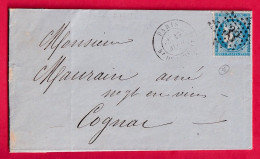 Monsieur
Maurain ainé
negt en vins
Cognac
PARIS